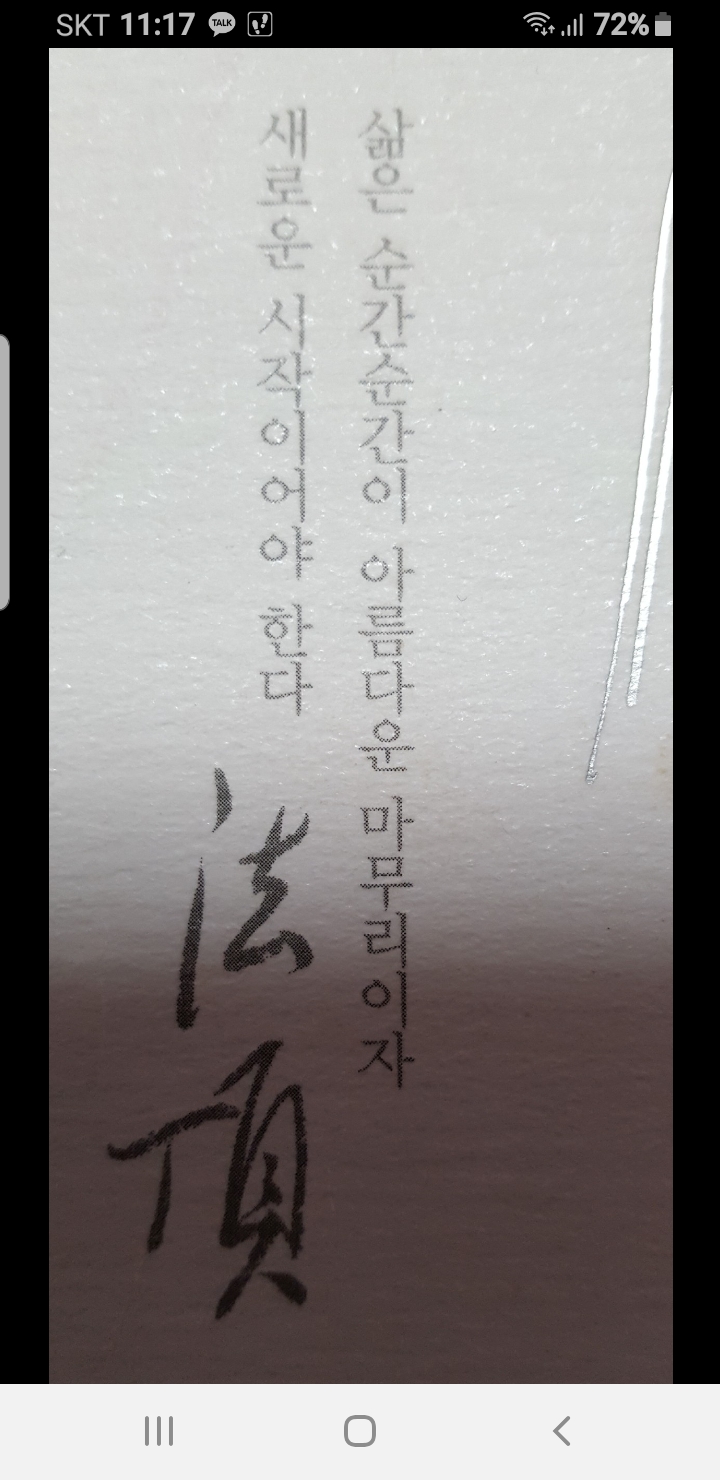 SKT 11:17 TALK 72%
삶은 순간순간이 아름다운 마무리이자
새로운 시작이어야 한다
法頂